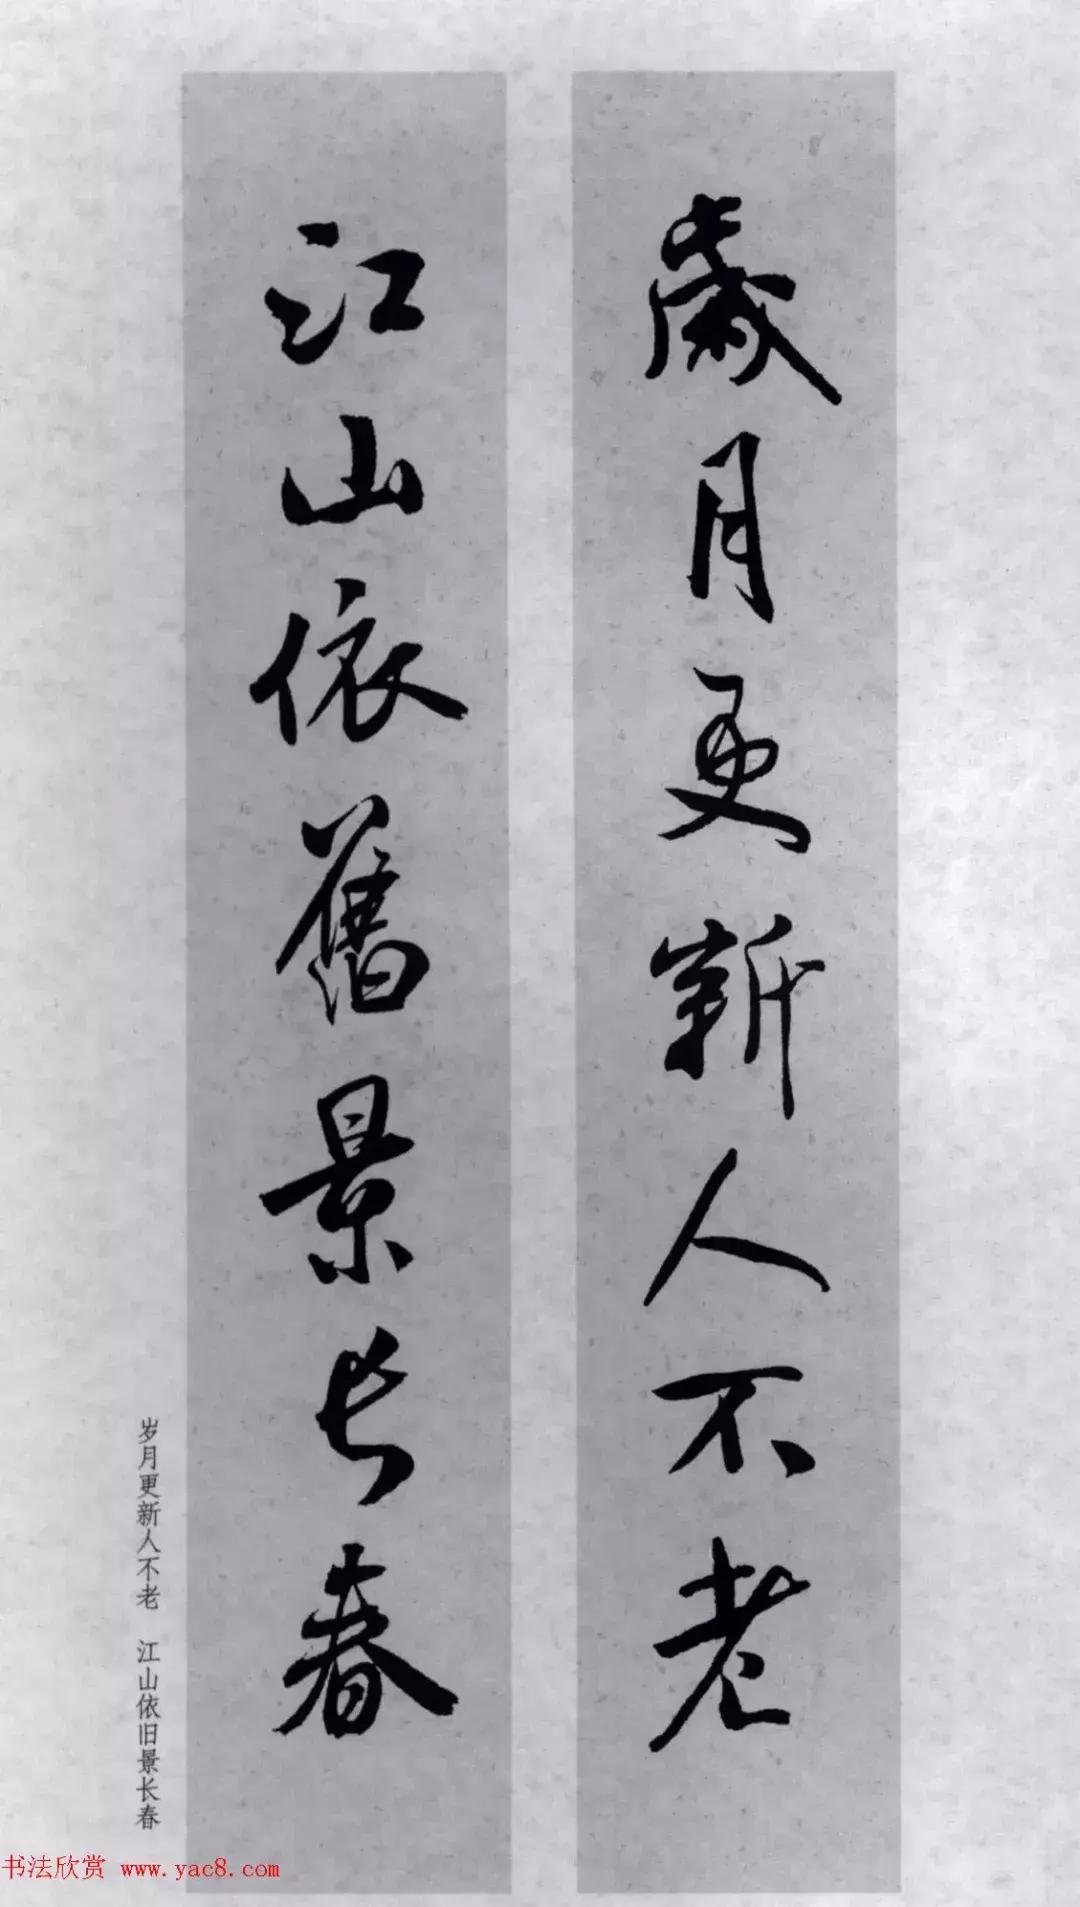 歲月更新人不老
江山依舊景長春
岁月更新人不老 江山依旧景长春
书法欣赏 www.yac8.com